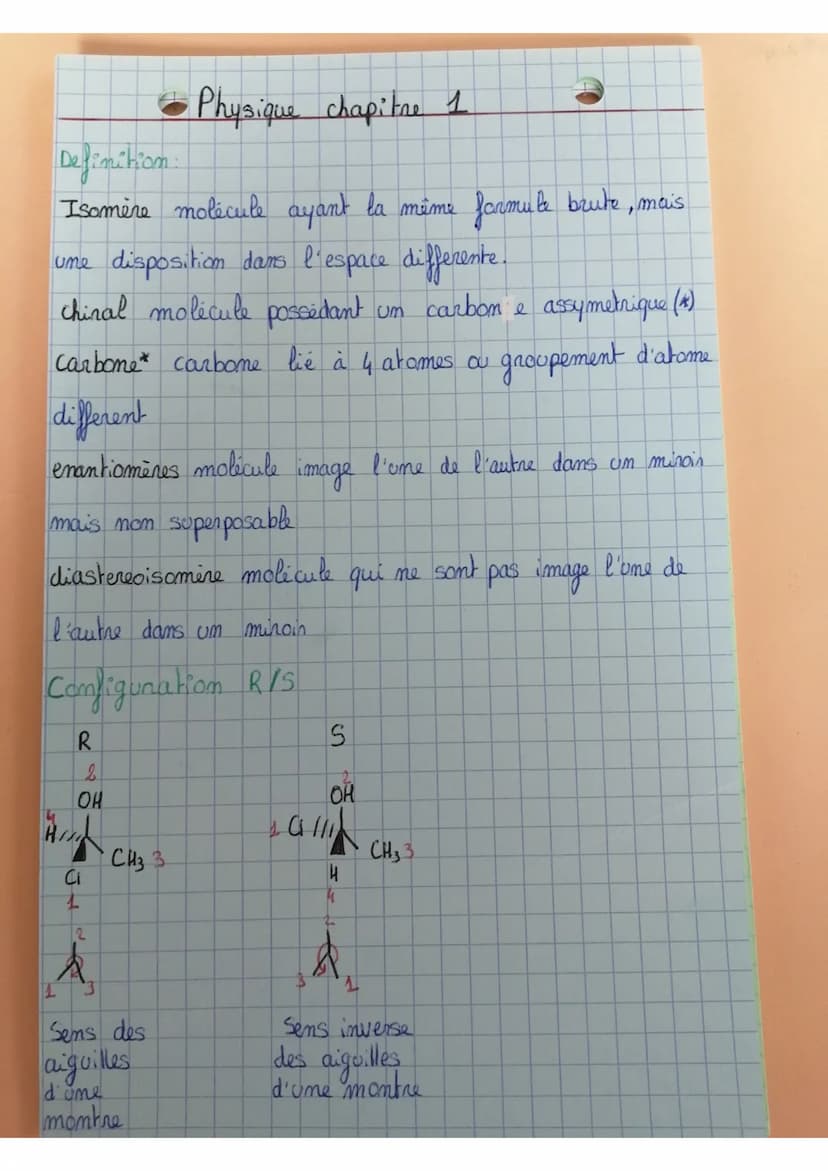 Physique chapitre 1
Definition:
Isomère molécule ayant la même formule brute, mais
une disposition dans l'espace differente.
chiral molécule possédant un carbon e assymetrique (*)
Carbone* carbone lié à 4 atomes ou groupement d'atome
different
enantiomères molécule image l'une de l'autre dans un miroir
mais non superposable
diastereoisomère molécule qui ne sont pas image l'une de
l'autre dans un miroir
Configuration R/S
R S
2 2
OH OH
4 H CH3 3 1 Cl CH3 3
Cl H
1 4
2 2
1 3 3 1
Sens des Sens inverse
aiguilles des aiguilles
d'une d'une montre
montre